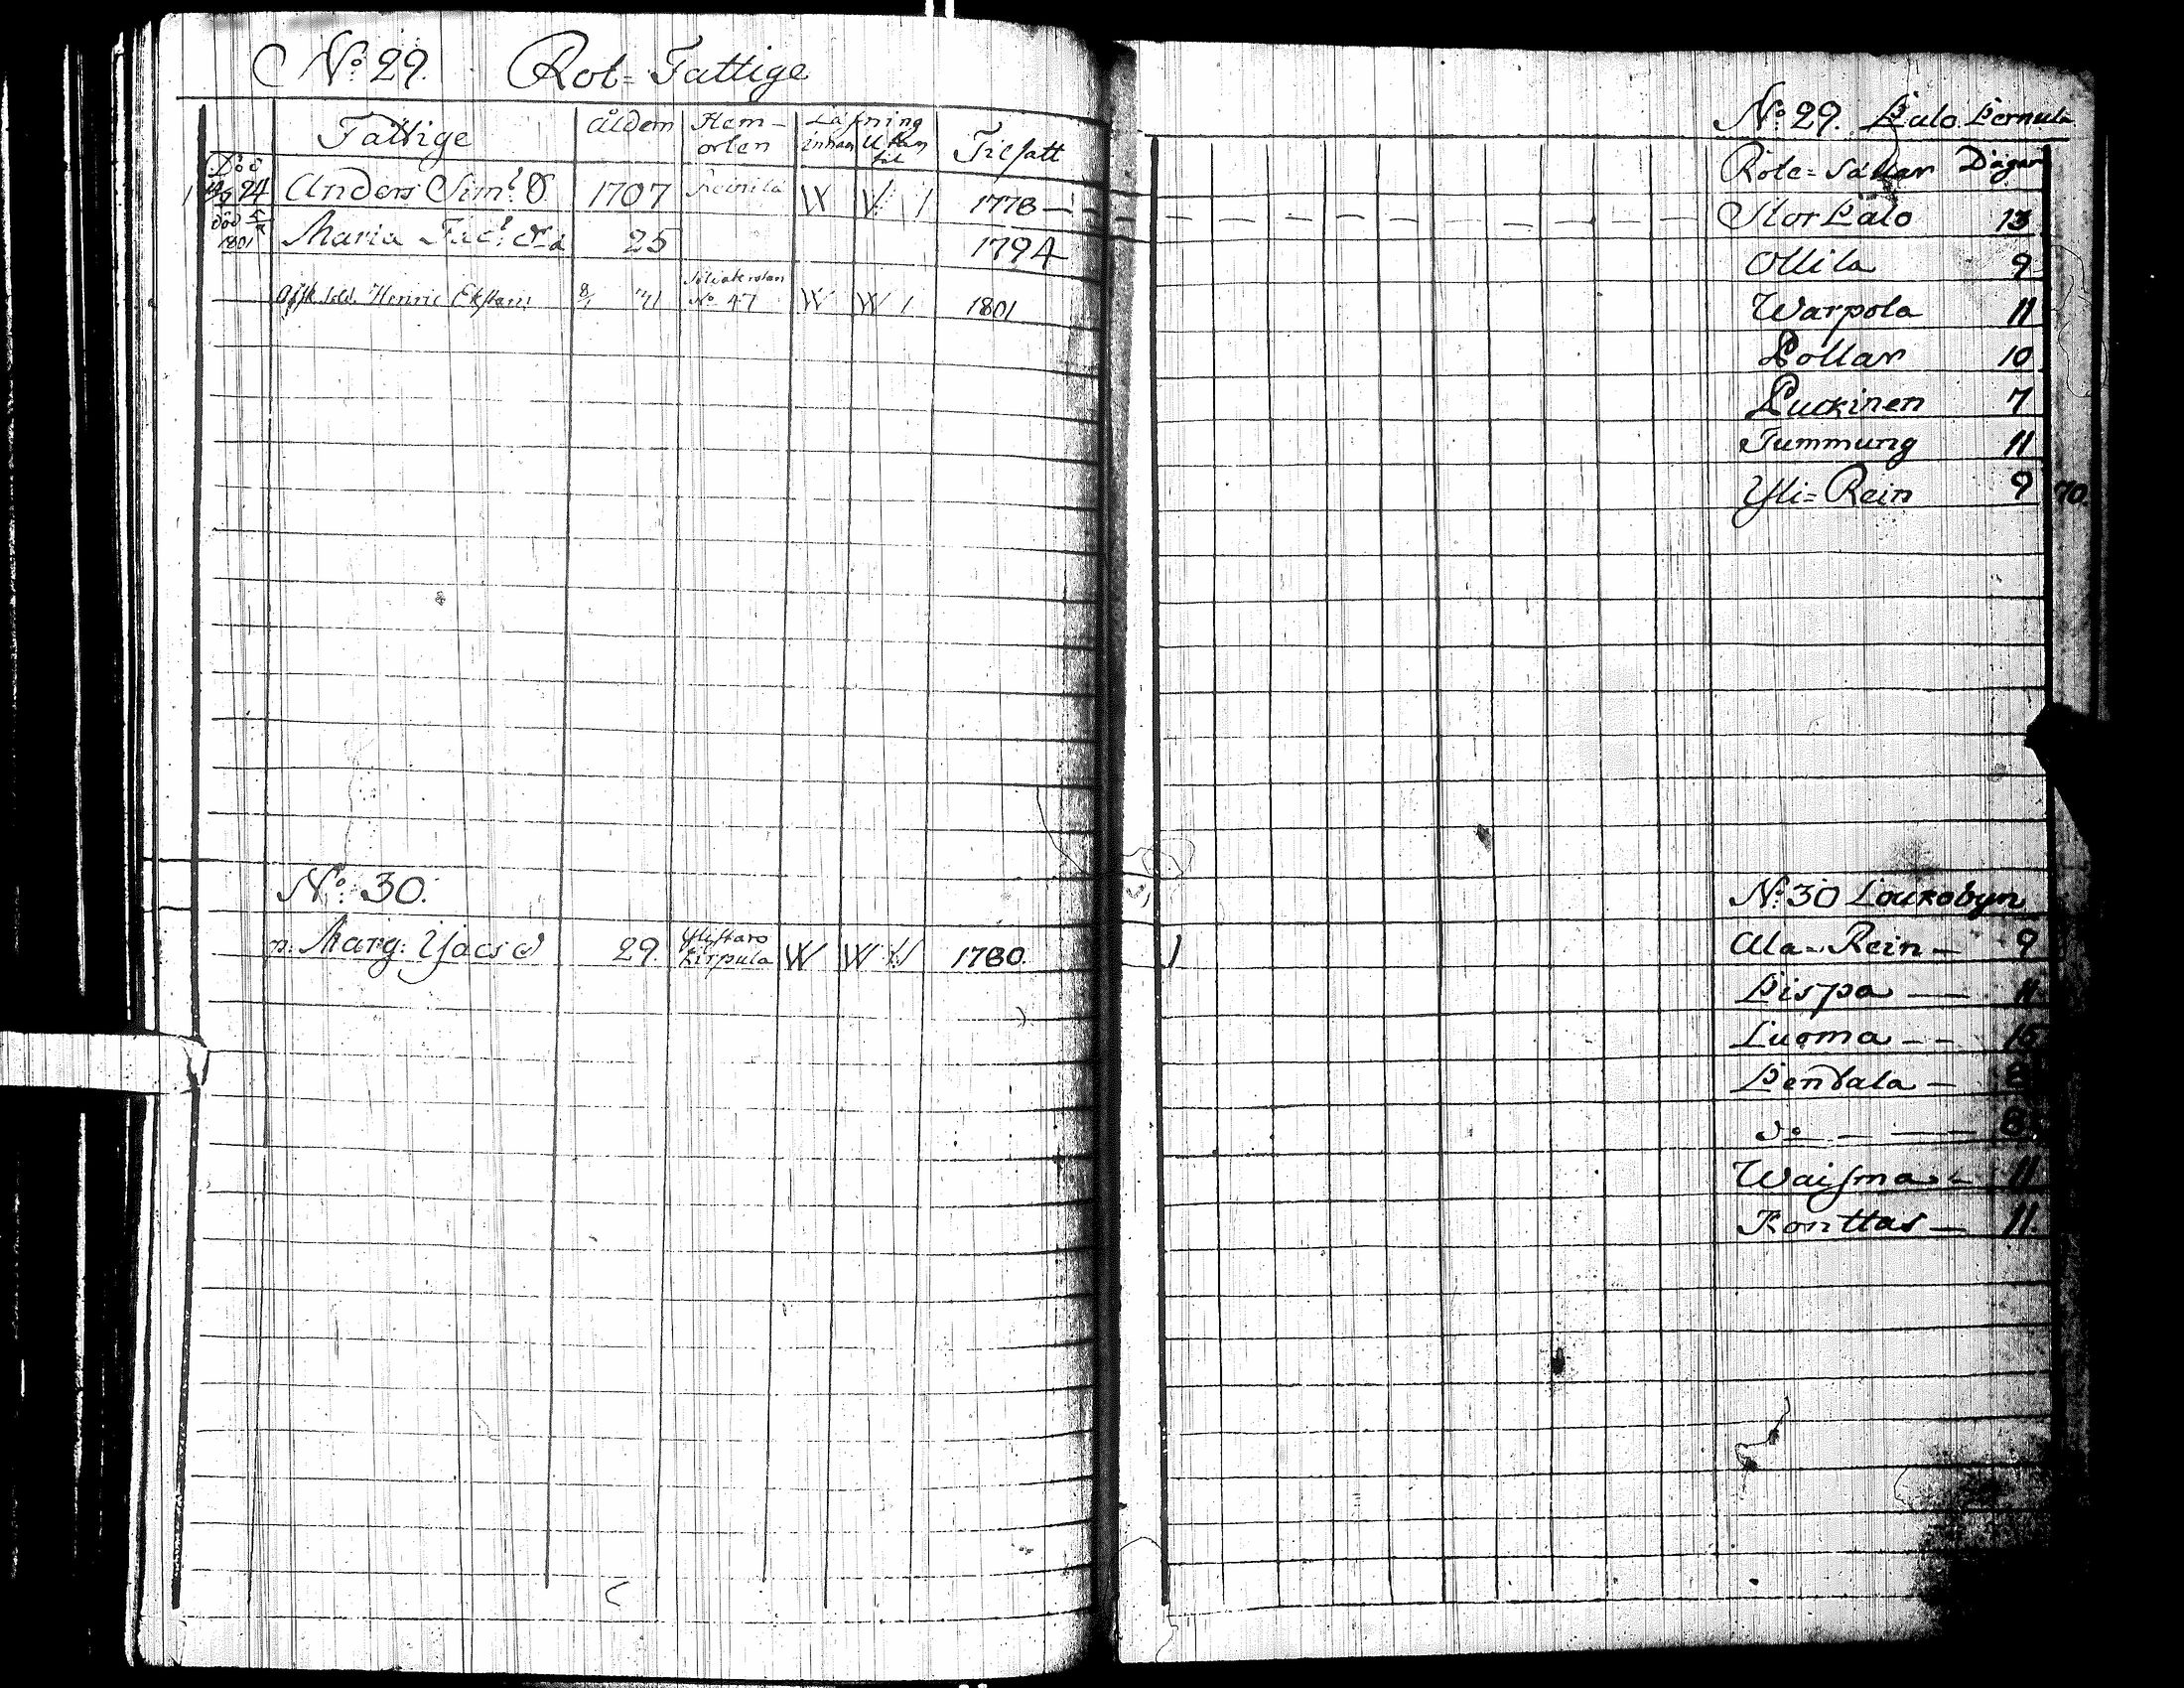 No 29. Rot=Fattige
Fattige Åldern Hem-orten Läsning innan Utan til Tilsatt
Död 24 Anders Sim: 1707 Reinilä W V 1 1778
död 1801 Maria Jac: 25 1794
Afsk. Sold. Henric Ekstam 8/1 No 47 W W 1 1801
No 30.
Marg: Jacs d 29. Ylistaro Kirpula W W 1780.
1
No 29. Palo Pernula
Rote=Såttar Dagar
Stor Palo 13
Ollila 9
Warpola 11
Pollar 10
Puckinen 7
Tummung 11
Yli=Rein 9 70.
No 30 Loukobyn
Ala=Rein - 9
Pispa - 11
Luoma - - 15
Pentala - 8
do - - 8
Waisma 11
Konttas - 11.